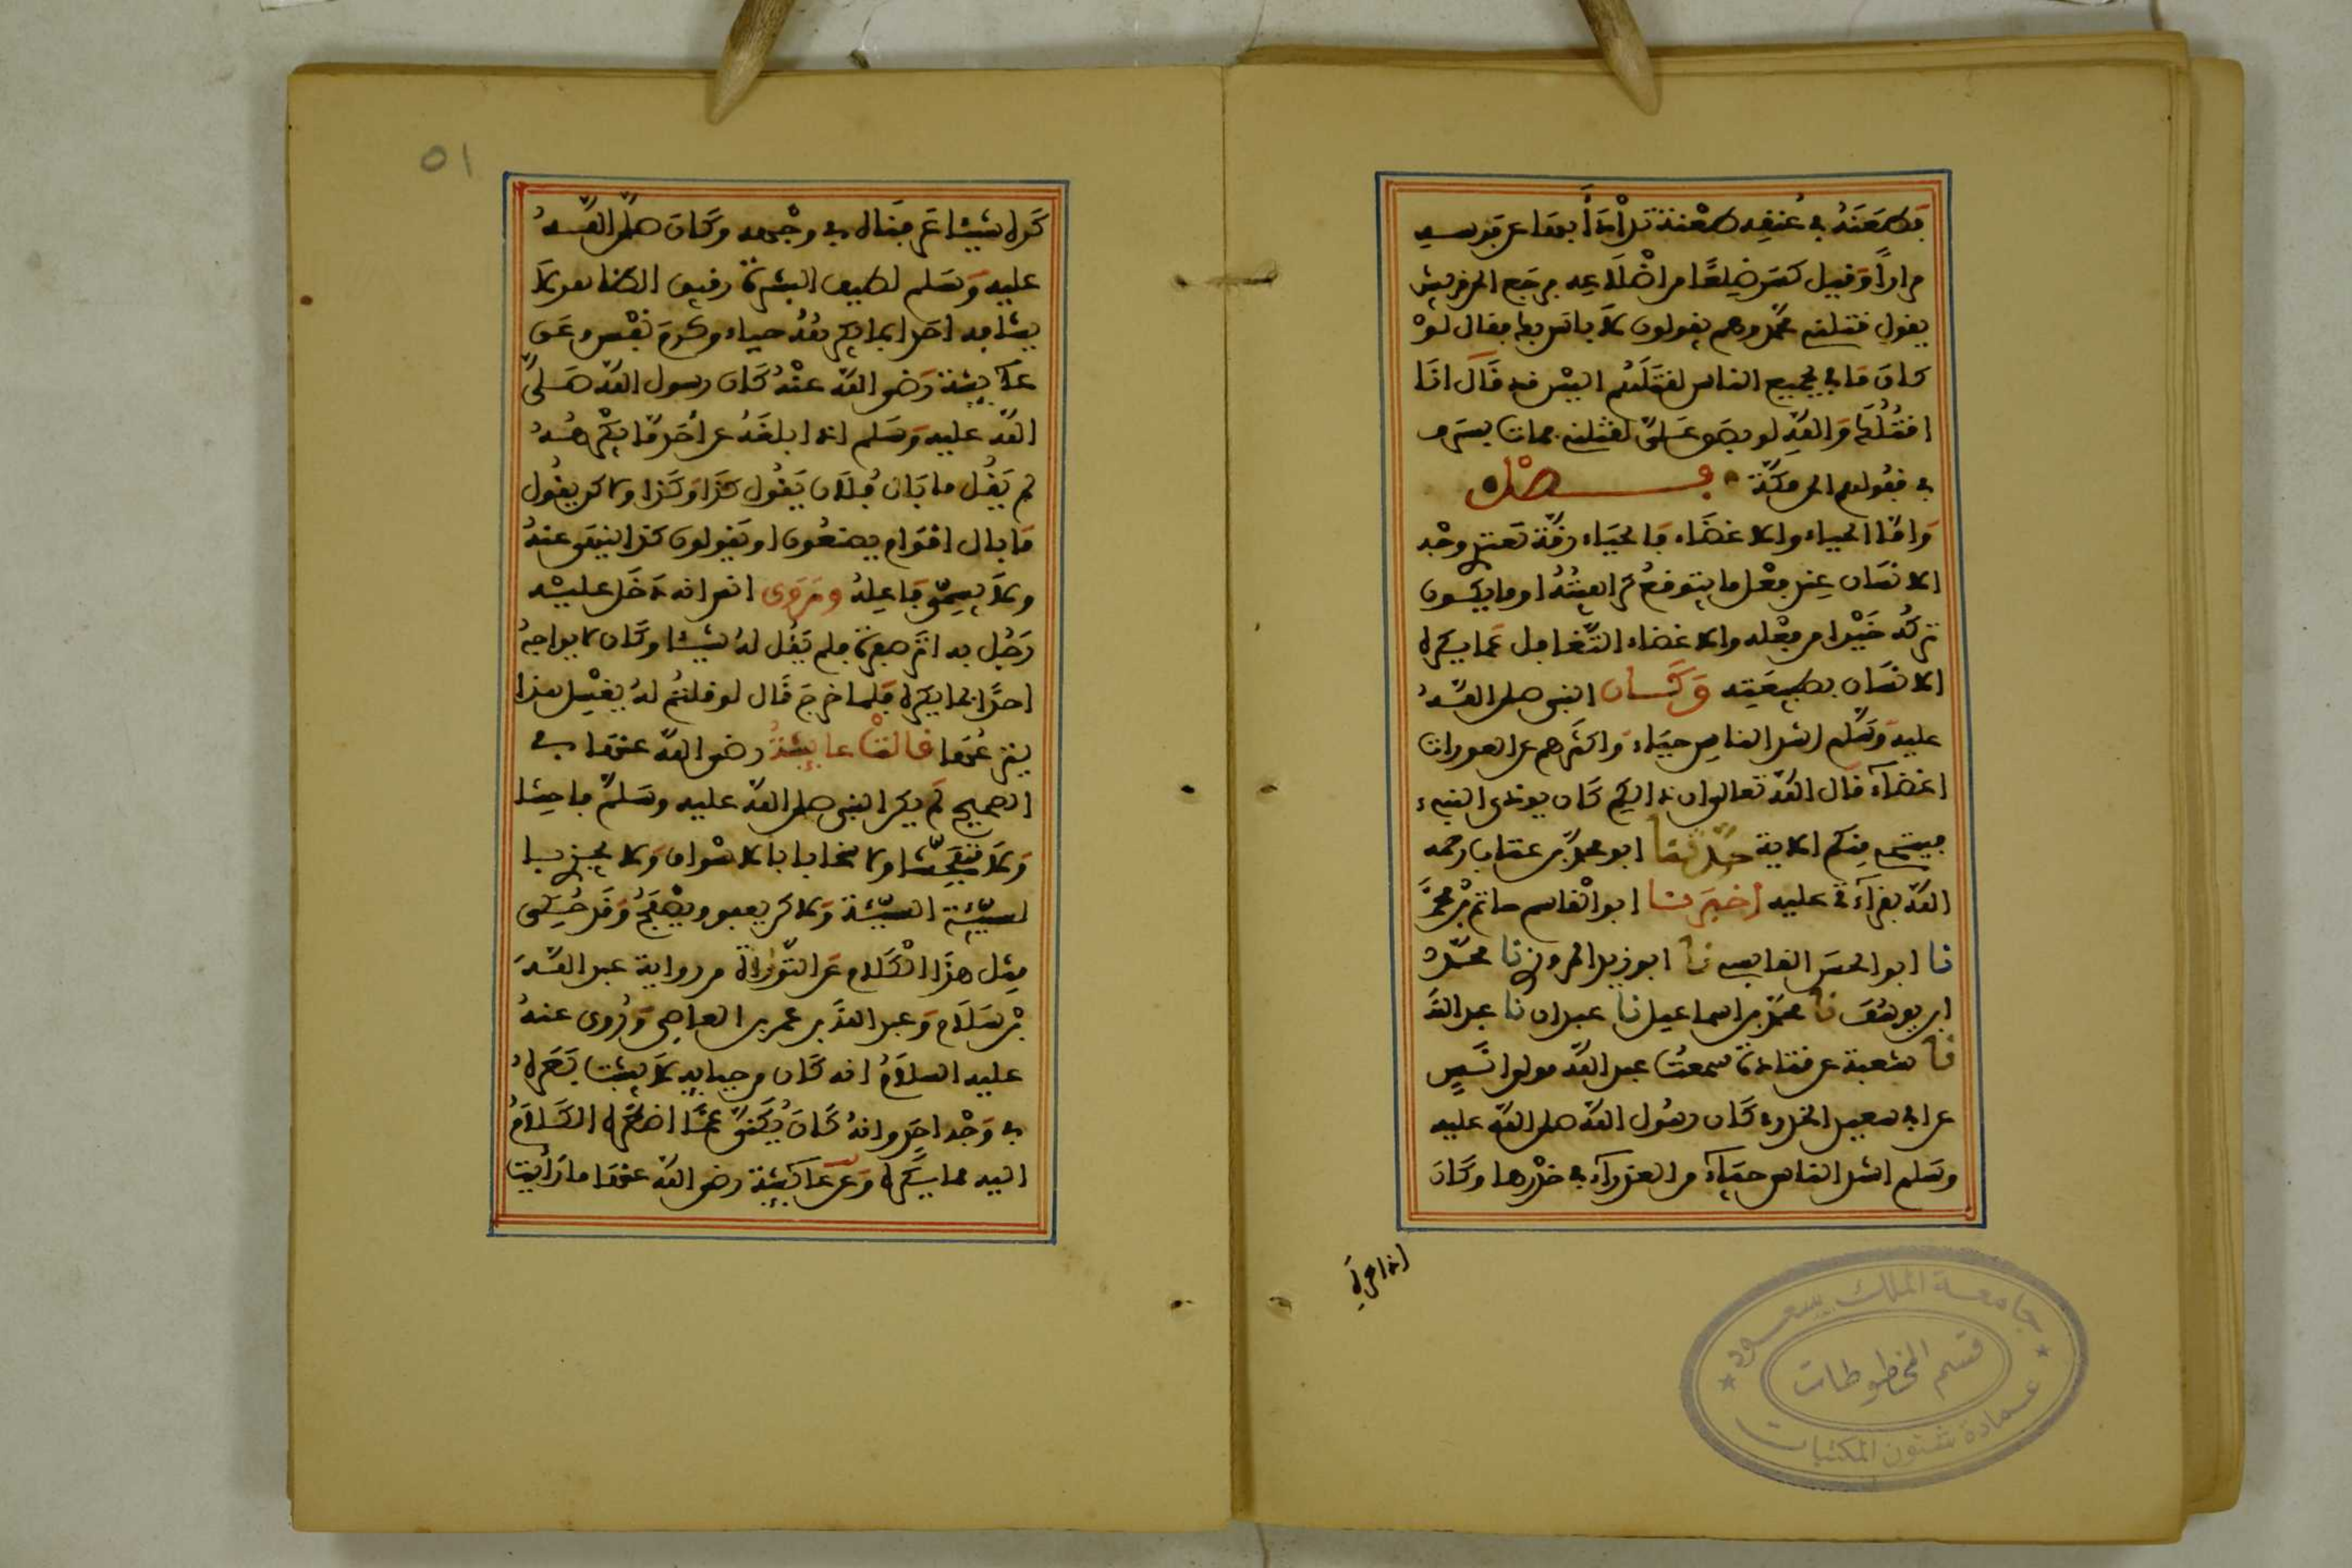 فطعنه في عنقه طعنة تدأدأ بها عن فرسه
مرارا وقيل كسر ضلعا من اضلاعه فرجع الى قريش
يقول قتلني محمد وهم يقولون لا باس بك فقال لو
كان ما بي بجميع الناس لقتلهم اليس قد قال انا
اقتلك والله لو بصق علي لقتلني فمات بسرف
في قفولهم الى مكة فصل
واما الحياء والاغضاء فالحياء رقة تعتري وجه
الانسان عند فعل ما يتوقع كراهيته او ما يكون
تركه خيرا من فعله والاغضاء التغافل عما يكره
الانسان بطبيعته وكان النبي صلى الله
عليه وسلم اشد الناس حياء واكثرهم عن العورات
اغضاء قال الله تعالى ان ذالكم كان يوذي النبيء
فيستحي منكم الاية حدثنا ابو محمد بن عتاب رحمه
الله بقراءتي عليه اخبرنا ابو القاسم حاتم بن محمد
نا ابو الحسن القابسي نا ابو زيد المروزي نا محمد
ابن يوسف نا محمد بن اسماعيل نا عبدان نا عبد الله
نا شعبة عن قتادة سمعت عبد الله مولى انس
عن ابي سعيد الخدري كان رسول الله صلى الله عليه
وسلم اشد الناس حياء من العذراء في خدرها وكان
اذا كره
٥١
كره شيئا عرفناه في وجهه وكان صلى الله
عليه وسلم لطيف البشرة رقيق الظاهر لا
يشافه احدا بما يكرهه حياء وكرم نفس وعن
عائشة رضي الله عنه كان رسول الله صلى
الله عليه وسلم اذا بلغه عن احد ما يكرهه
لم يقل ما بال فلان يقول كذا وكذا ولاكن يقول
ما بال اقوام يصنعون او يقولون كذا ينهى عنه
ولا يسمي فاعله وروى انس انه دخل عليه
رجل به اثر صفرة فلم يقل له شيئا وكان لا يواجه
احدا بما يكره فلما خرج قال لو قلتم له يغسل هذا
ينزعها قالت عائشة رضي الله عنها في
الصحيح لم يكن النبي صلى الله عليه وسلم فاحشا
ولا متفحشا ولا سخابا بالاسواق ولا يجزي با
لسيئة السيئة ولاكن يعفو ويصفح وقد حكي
مثل هذا الكلام عن التوراة من رواية عبد الله
بن سلام وعبد الله بن عمر بن العاصي وروي عنه
عليه السلام انه كان من حيائه لا يثبت بصره
في وجه احد وانه كان يكني عما اضطره الكلام
اليه مما يكره وعن عائشة رضي الله عنها ما رايت
جامعة الملك سعود
قسم المخطوطات
عمادة شئون المكتبات